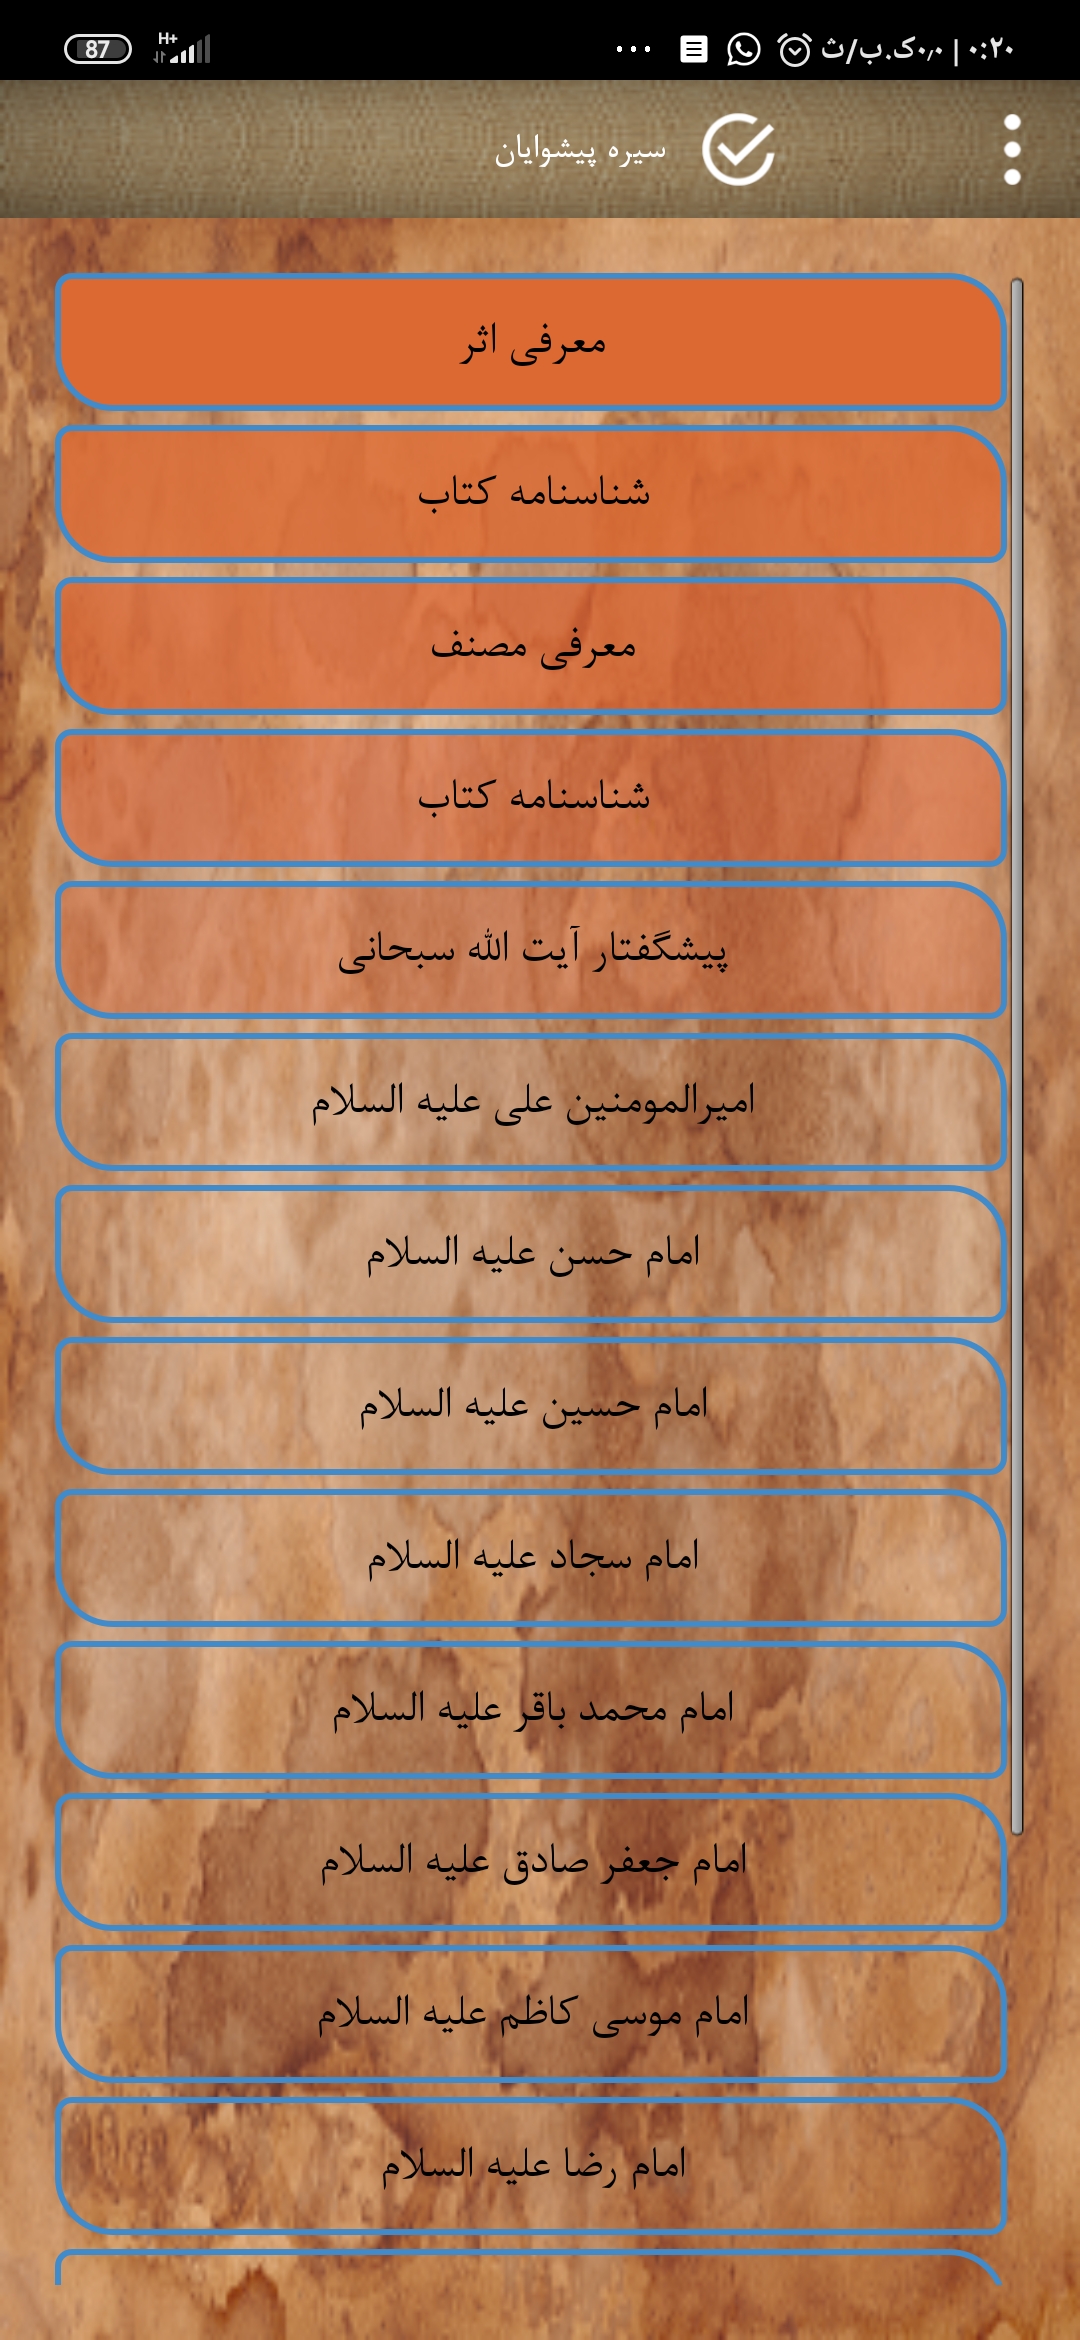 ۰:۲۰ | ۰٫۰ک.ب/ث
H+
87
سیره پیشوایان
معرفی اثر
شناسنامه کتاب
معرفی مصنف
شناسنامه کتاب
پیشگفتار آیت الله سبحانی
امیرالمومنین علی علیه السلام
امام حسن علیه السلام
امام حسین علیه السلام
امام سجاد علیه السلام
امام محمد باقر علیه السلام
امام جعفر صادق علیه السلام
امام موسی کاظم علیه السلام
امام رضا علیه السلام